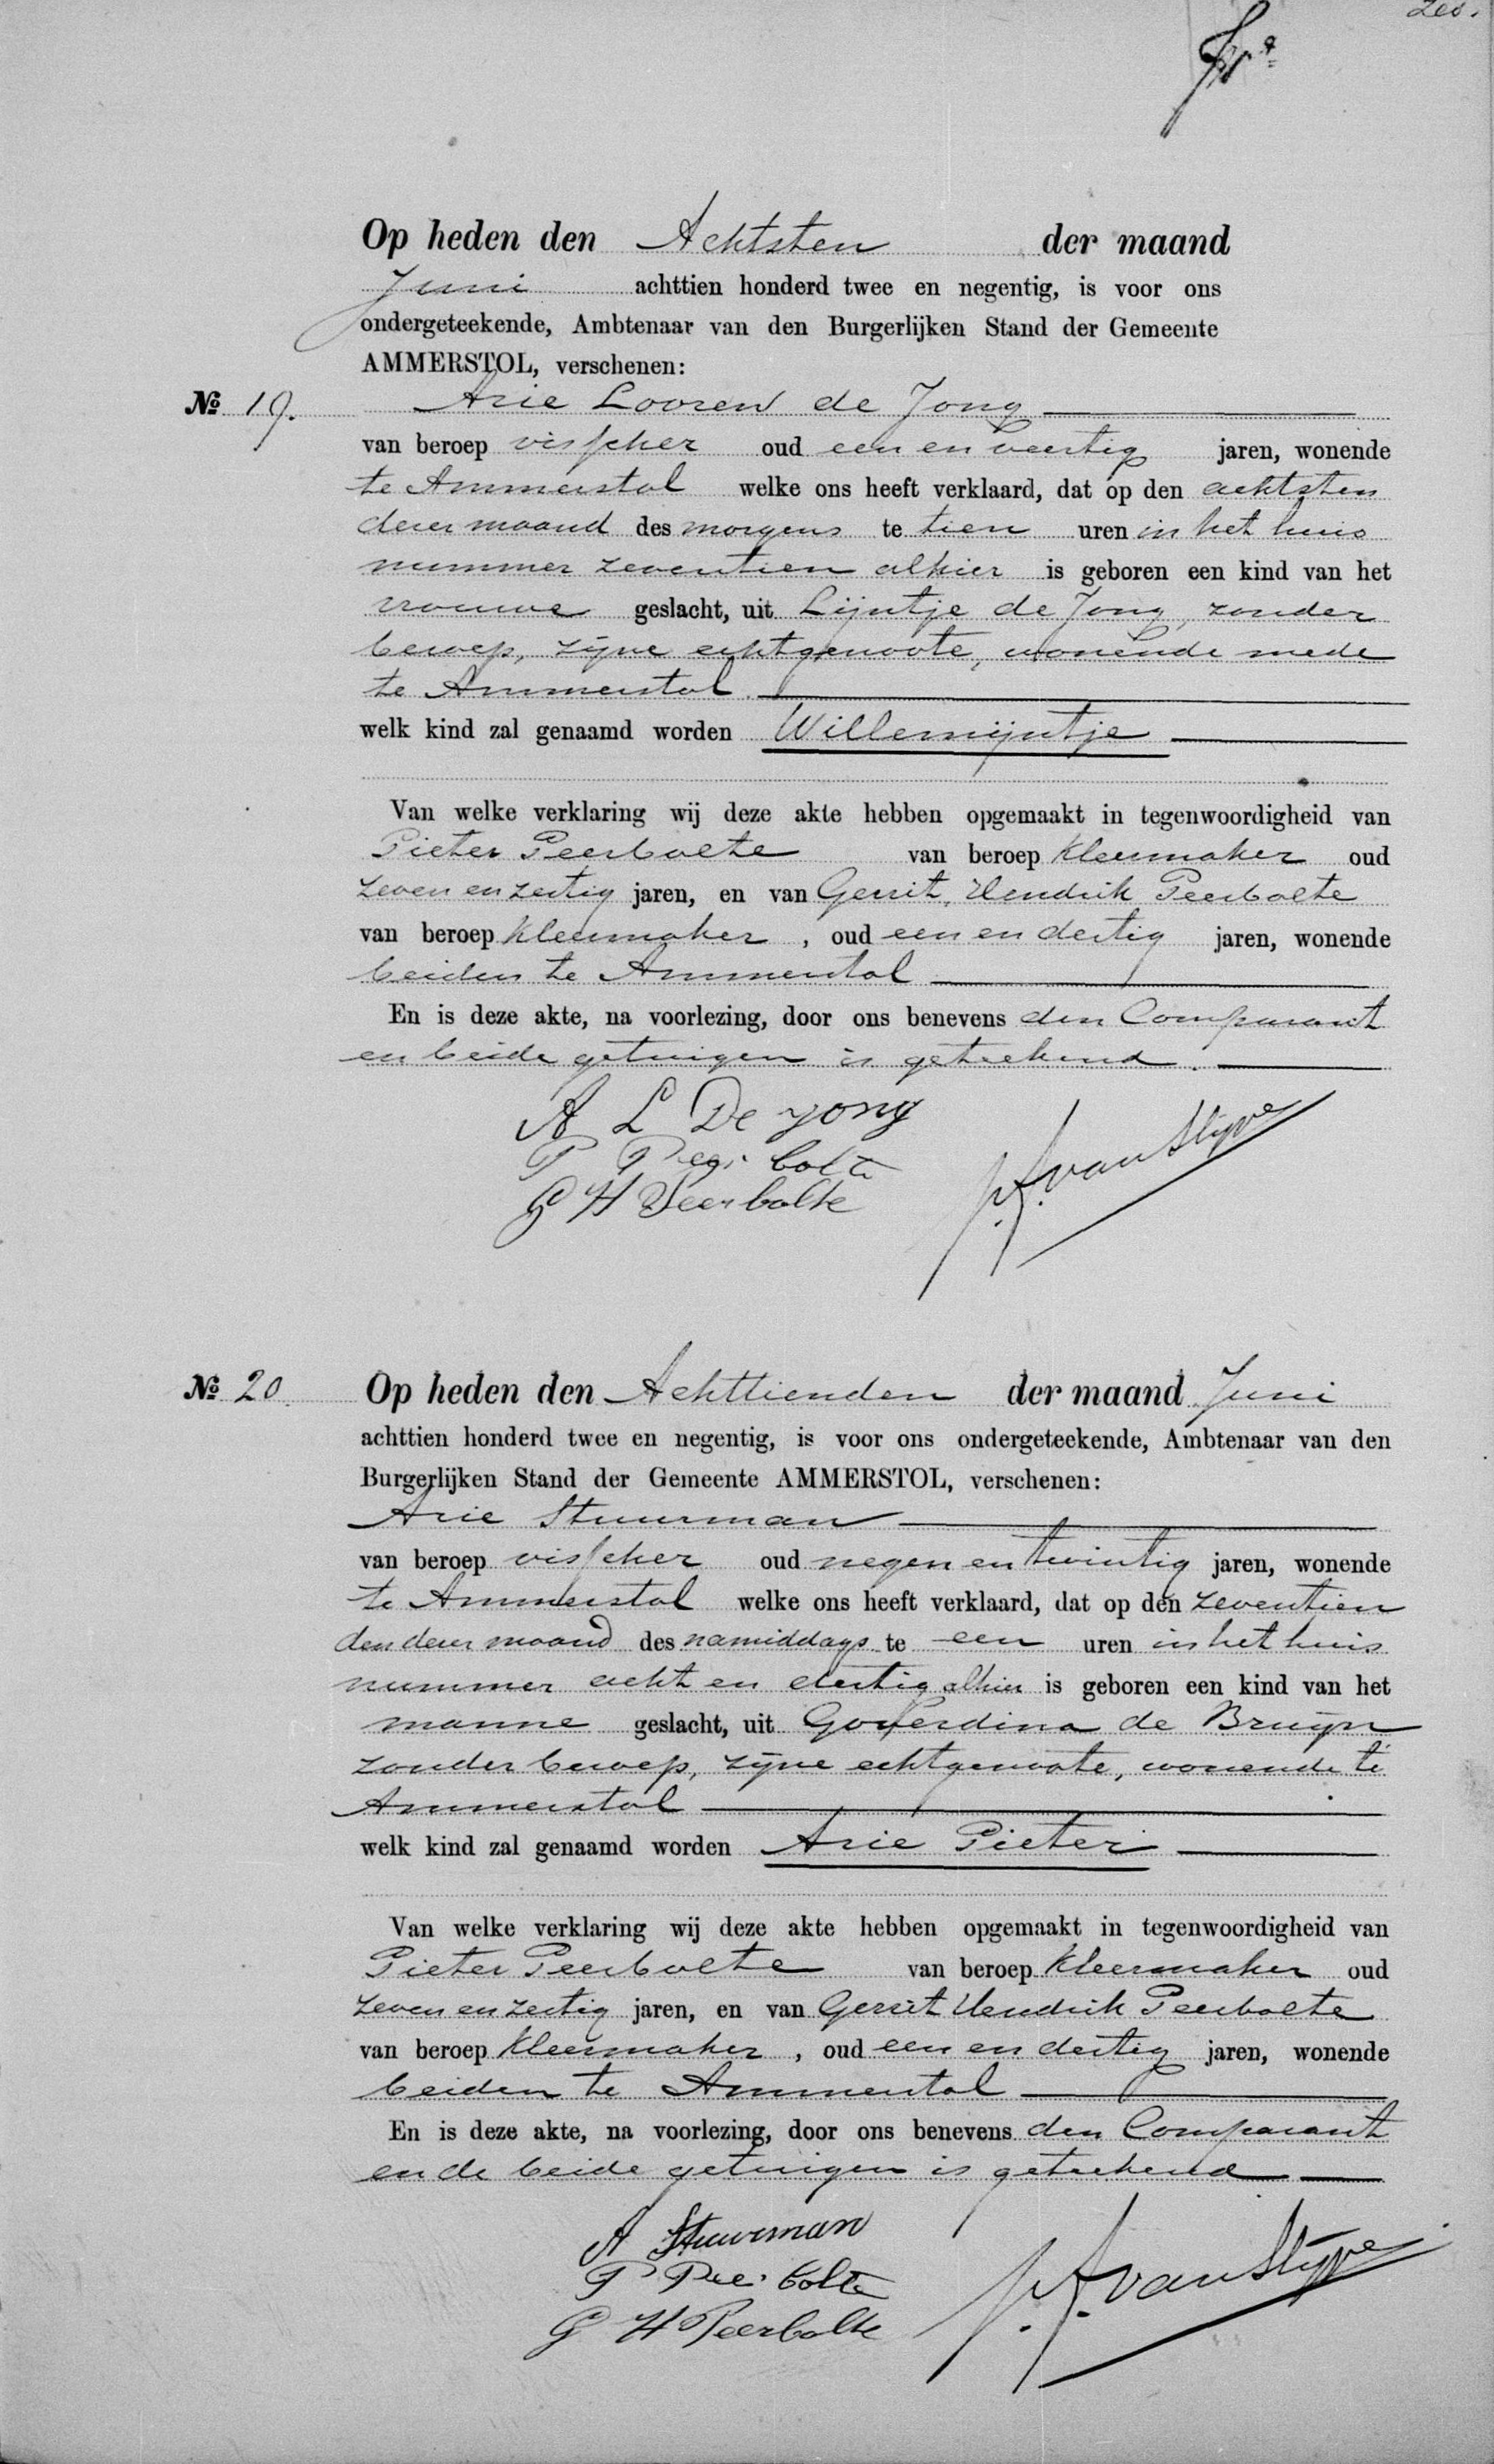 zes.
Op heden den Achtsten der maand
Juni achttien honderd twee en negentig, is voor ons
ondergeteekende, Ambtenaar van den Burgerlijken Stand der Gemeente
AMMERSTOL, verschenen:
No 19. Arie Looren de Jong
van beroep visscher oud een en veertig jaren, wonende
te Ammerstol welke ons heeft verklaard, dat op den achtsten
dezer maand des morgens te tien uren in het huis
nummer zeventien alhier is geboren een kind van het
vrouwe geslacht, uit Lijntje de Jong, zonder
beroep, zijne echtgenoote, wonende mede
te Ammerstol.
welk kind zal genaamd worden Willemijntje
Van welke verklaring wij deze akte hebben opgemaakt in tegenwoordigheid van
Pieter Peerbolte van beroep Kleermaker oud
zeven en zestig jaren, en van Gerrit Hendrik Peerbolte
van beroep Kleermaker, oud een en dertig jaren, wonende
beiden te Ammerstol
En is deze akte, na voorlezing, door ons benevens den Comparant
en beide getuigen is geteekend.
A L De jong
P Peerbolte
G H Peerbolte
No 20 Op heden den Achttienden der maand Juni
achttien honderd twee en negentig, is voor ons ondergeteekende, Ambtenaar van den
Burgerlijken Stand der Gemeente AMMERSTOL, verschenen:
Arie Stuurman
van beroep visscher oud negen en twintig jaren, wonende
te Ammerstol welke ons heeft verklaard, dat op den zeventien
den dezer maand des namiddags te een uren in het huis
nummer acht en dertig alhier is geboren een kind van het
manne geslacht, uit Goverdina de Bruijn
zonder beroep, zijne echtgenoote, wonende te
Ammerstol
welk kind zal genaamd worden Arie Pieter
Van welke verklaring wij deze akte hebben opgemaakt in tegenwoordigheid van
Pieter Peerbolte van beroep Kleermaker oud
zeven en zestig jaren, en van Gerrit Hendrik Peerbolte
van beroep Kleermaker, oud een en dertig jaren, wonende
beiden te Ammerstol
En is deze akte, na voorlezing, door ons benevens den Comparant
en de beide getuigen is geteekend
A Stuurman
P Peerbolte
G H Peerbolte